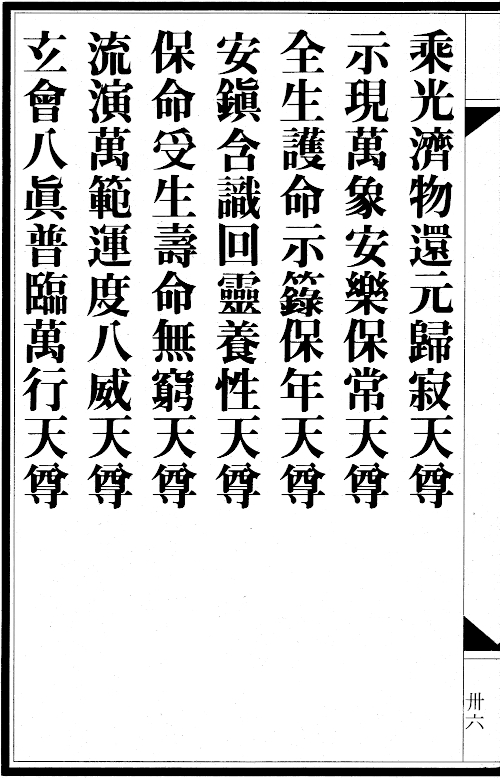 乘光濟物還元歸寂天尊
示現萬象安樂保常天尊
全生護命示籙保年天尊
安鎭含識回靈養性天尊
保命受生壽命無窮天尊
流演萬範運度八威天尊
玄會八眞普臨萬行天尊
卅六